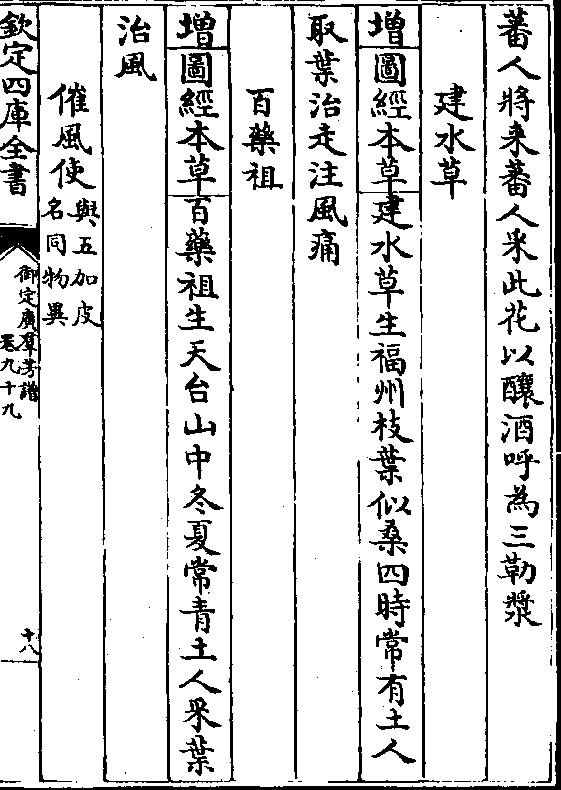 蕃人將来蕃人采此花以釀酒呼為三勒漿
建水草
增圖經本草建水草生福州枝葉似桑四時常有土人
取葉治走注風痛
百藥祖
增圖經本草百藥祖生天台山中冬夏常青土人采葉
治風
催風使與五加皮
名同物異
欽定四庫全書
御定廣羣芳譜
卷九十九
十八